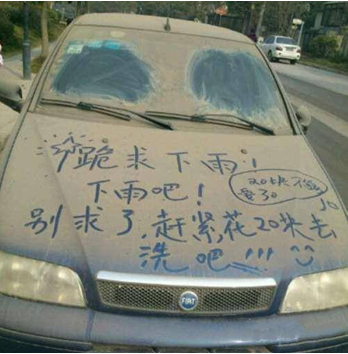 跪求下雨!
下雨吧!
别求了,赶紧,花20块去
洗吧!!!
20块不够
要30
FIAT